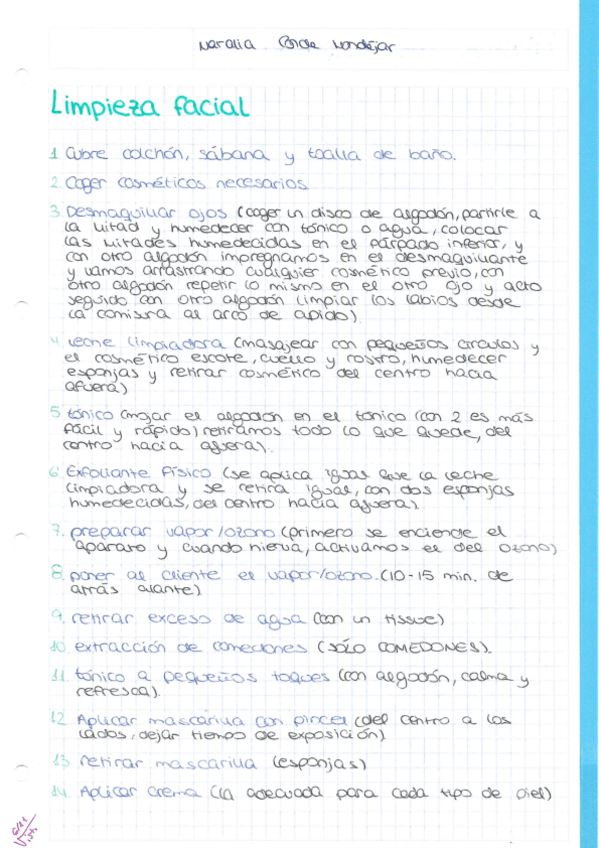 Natalia Conde Mondéjar
Limpieza facial
1. Cubre colchón, sábana y toalla de baño.
2. Coger cosméticos necesarios
3. Desmaquillar ojos (coger un disco de algodón, partirlo a
la mitad y humedecer con tónico o agua, colocar
las mitades humedecidas en el párpado inferior, y
con otro algodón impregnamos en el desmaquillante
y vamos arrastrando cualquier cosmético previo, con
otro algodón repetir lo mismo en el otro ojo y acto
seguido con otro algodón limpiar los labios desde
la comisura al arco de cupido).
4. Leche limpiadora (masajear con pequeños circulos y
el cosmético escote, cuello y rostro, humedecer
esponjas y retirar cosmético del centro hacia
afuera)
5. tónico (mojar el algodón en el tónico (con 2 es más
fácil y rápido) retiramos todo lo que quede, del
centro hacia afuera).
6. Exfoliante Físico (se aplica igual que la leche
limpiadora y se retira igual, con dos esponjas
humedecidas, del centro hacia afuera)
7. preparar vapor/ozono (primero se enciende el
aparato y cuando hierva, activamos el del ozono)
8. poner al cliente el vapor/ozono. (10-15 min. de
atrás alante)
9. retirar exceso de agua (con un tissue)
10. extracción de comedones (SÓLO COMEDONES).
11. tónico a pequeños toques (con algodón, calma y
refresca).
12. Aplicar mascarilla con pincel (del centro a los
lados, dejar tiempo de exposición)
13. retirar mascarilla (esponjas)
14. Aplicar crema (la adecuada para cada tipo de piel)